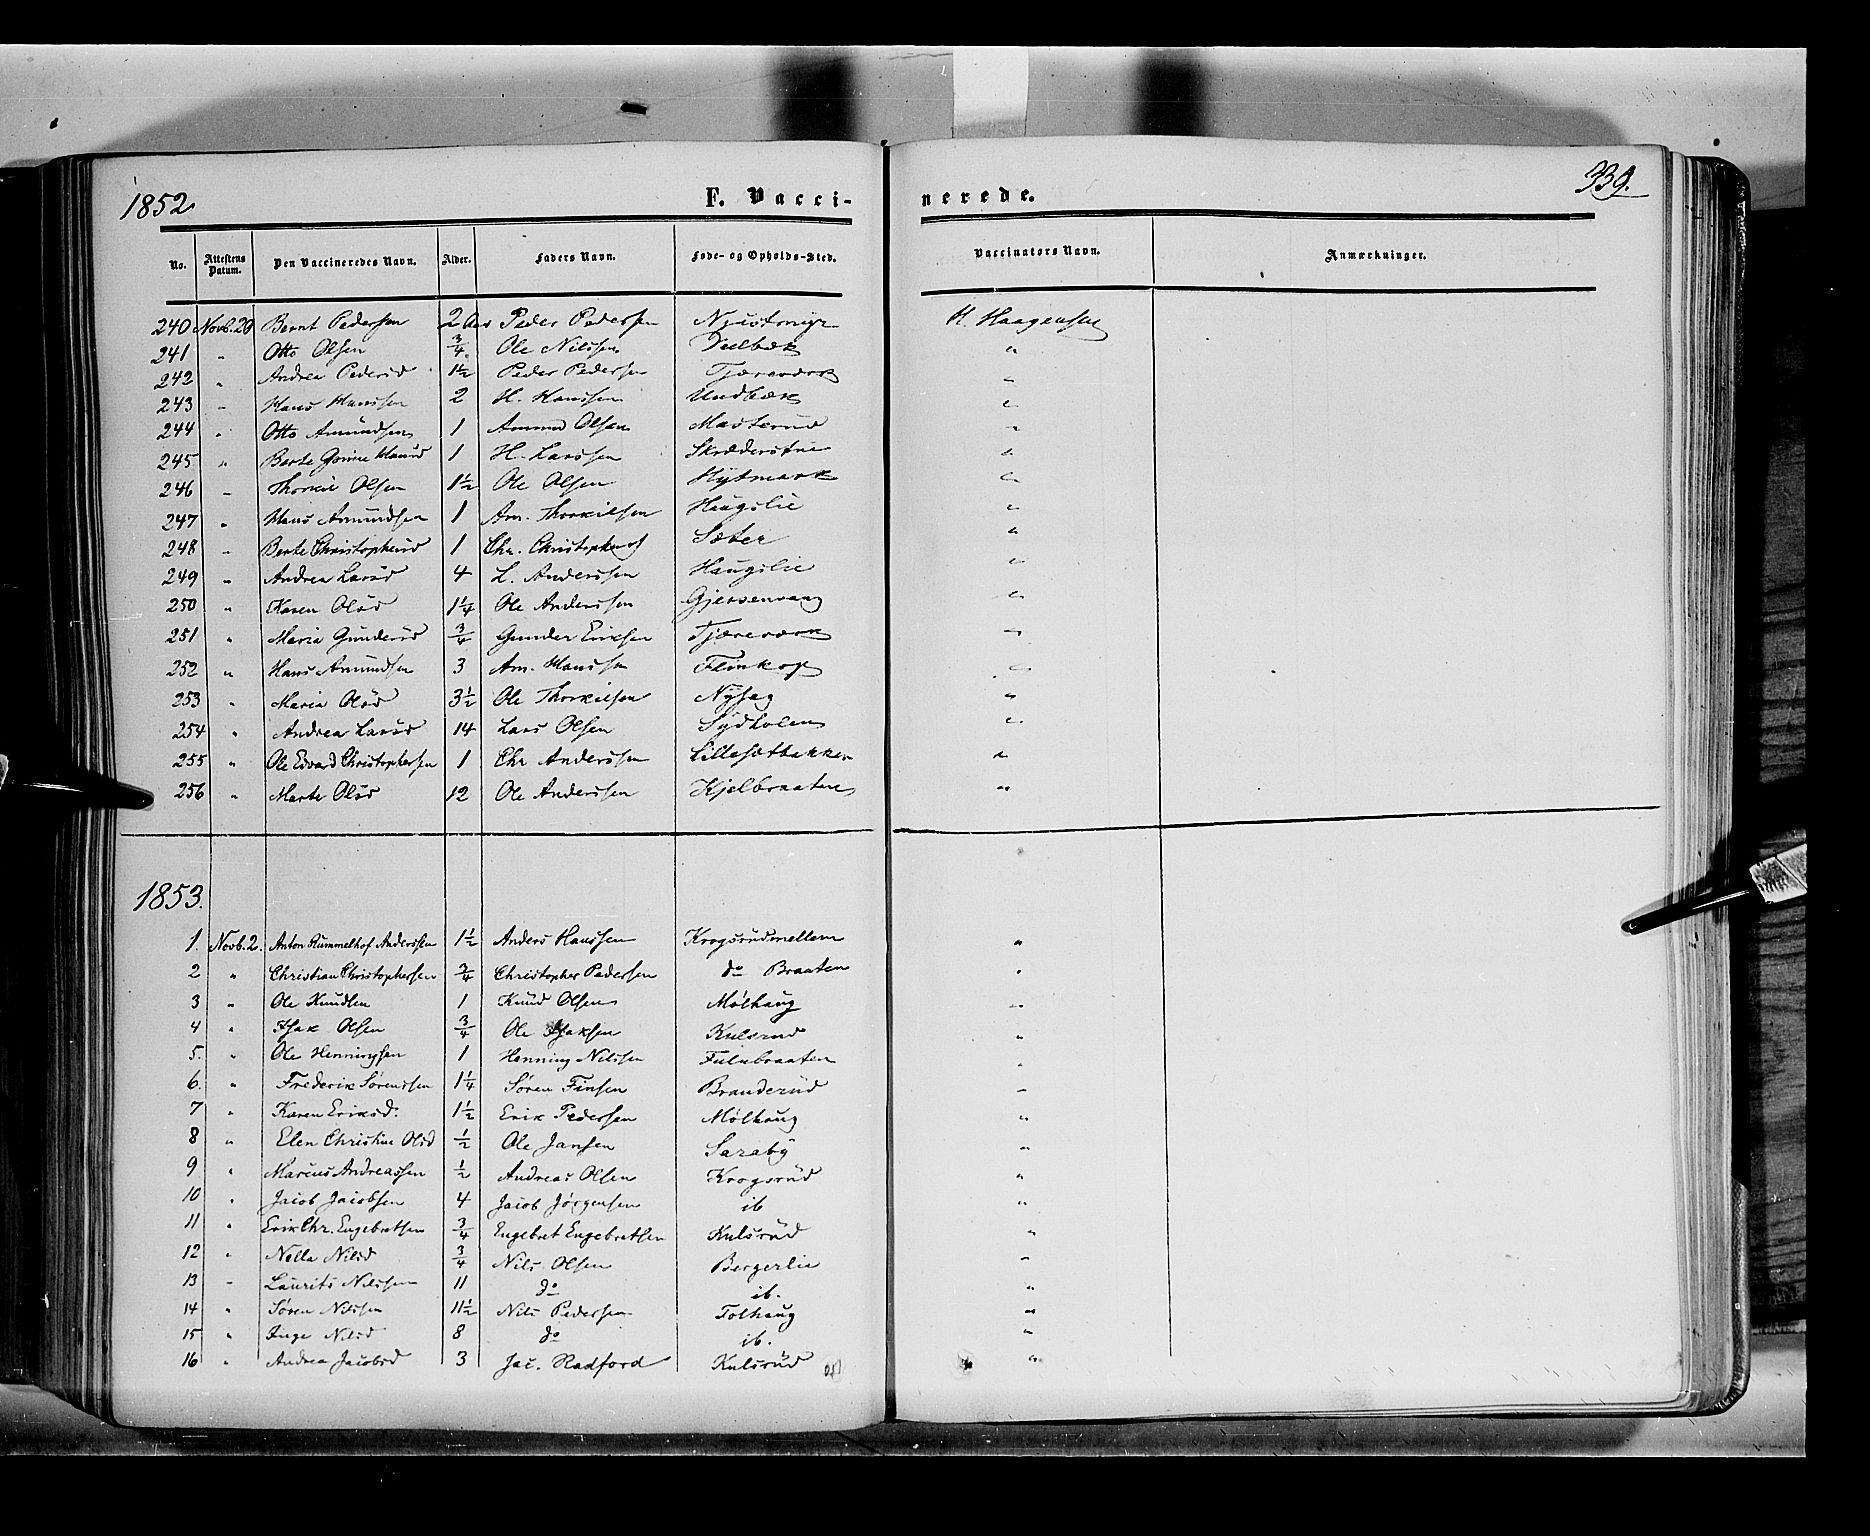 1852. F. Vaccinerede. 339.
No. Attestens Datum. Den Vaccineredes Navn. Alder. Faders Navn. Føde- og Opholds-Sted. Vaccinators Navn. Anmærkninger.
240 Novb. 20 Bernt Pedersen 2 Aar Peder Pedersen H. Haagensen
241 " Otto Olsen 3/4 Ole Nilssen "
242 " Andrea Pedersd 1 1/2 Peder Pedersen Tjæreværk "
243 " Hans Hanssen 2 H. Hanssen Undbæk "
244 " Otto Amundsen 1 Ammund Olsen Masterud "
245 " Berte Hansd 1 H. Larssen Skrædderstue "
246 " Thorkil Olsen 1 1/2 Ole Olsen Hytmark "
247 " Hans Amundsen 1 Am. Thorkilsen Haugslie "
248 " Berte Christophersd 1 Chr. Christophersen Sæter "
249 " Andrea Larsd 4 L. Anderssen Haugslie "
250 " Karen Olsd 1 1/4 Ole Anderssen Gjersenvang "
251 " Maria Gundersd 3/4 Gunder Eriksen Tjæreværk "
252 " Hans Amundsen 3 Am. Hanssen Flinkop "
253 " Maria Olsd 3 1/2 Ole Thorkilsen Nysag "
254 " Andrea Larsd 14 Lars Olsen Sydholen "
255 " Ole Edvard Christophersen 1 Chr Anderssen Lillesætbakken "
256 " Marte Olsd 12 Ole Anderssen Kjelbraaten "
1853.
1. Novb. 2. Anton Rummelhof Anderssen 1 1/2 Anders Hanssen Krogsrudmellem "
2 " Christian Christophersen 3/4 Christopher Pedersen do Braaten "
3 " Ole Knudsen 1 Knud Olsen Mølhaug "
4 " Isak Olsen 3/4 Ole Isaksen Kulsrud "
5. " Ole Henningsen 1 Henning Nilssen Fulubraaten "
6. " Frederik Sørenssen 1 1/4 Søren Finsen Branderud "
7 " Karen Eriksd: 1 1/2 Erik Pedersen Mølhaug "
8 " Elen Christine Olsd 1/2 Ole Jansen Saraby "
9 " Marcus Andreassen 1/2 Andreas Olsen Krogsrud "
10 " Jacob Jacobsen 4 Jacob Jørgensen ib "
11 " Erik Chr. Engebretsen 3/4 Engebret Engebretsen Kulsrud "
12 " Nella Nilsd 3/4 Nils Olsen Bergerlie "
13 " Laurits Nilssen 11 do ib. "
14 " Søren Nilssen 11 1/2 Nils Pedersen Tolhaug "
15 " Inge Nilsd 8 do ib. "
16 " Andrea Jacobsd 3 Jac. Radford Kulsrud "